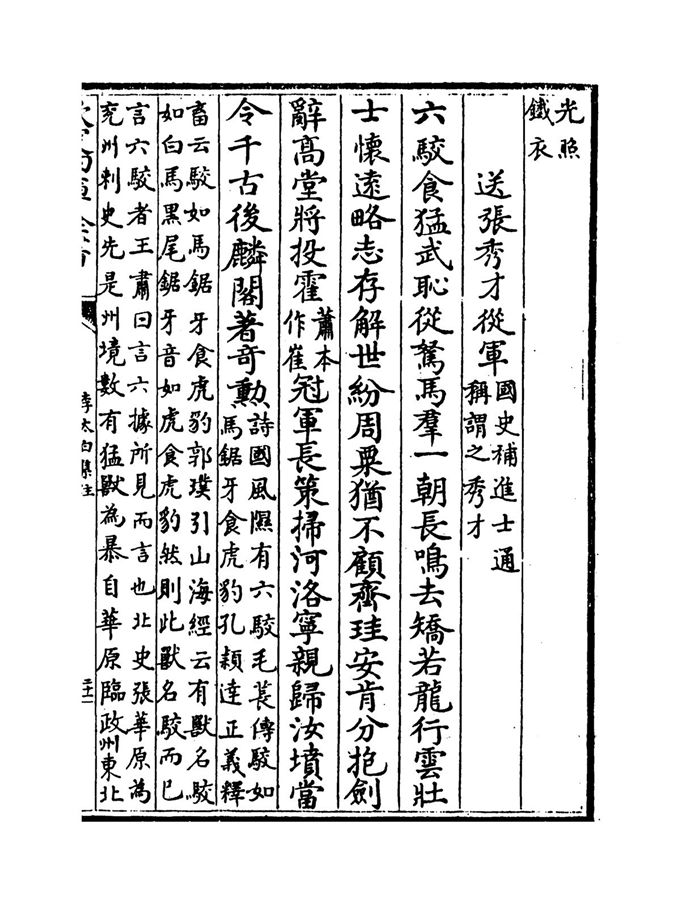 光照
鐵衣
送張秀才從軍國史補進士通
稱謂之秀才
六駮食猛武恥從駑馬羣一朝長鳴去矯若龍行雲壯
士懷遠略志存解世紛周粟猶不顧齊珪安肯分抱劍
辭高堂將投霍蕭本
作崔冠軍長策掃河洛寧親歸汝墳當
令千古後麟閣著奇勲詩國風隰有六駮毛萇傳駮如
馬鋸牙食虎豹孔穎達正義釋
畜云駮如馬鋸牙食虎豹郭璞引山海經云有獸名駮
如白馬黑尾鋸牙音如虎食虎豹然則此獸名駮而已
言六駮者王肅曰言六據所見而言也北史張華原為
兖州刺史先是州境數有猛獸為暴自華原臨政州東北
李太白集注
二十一